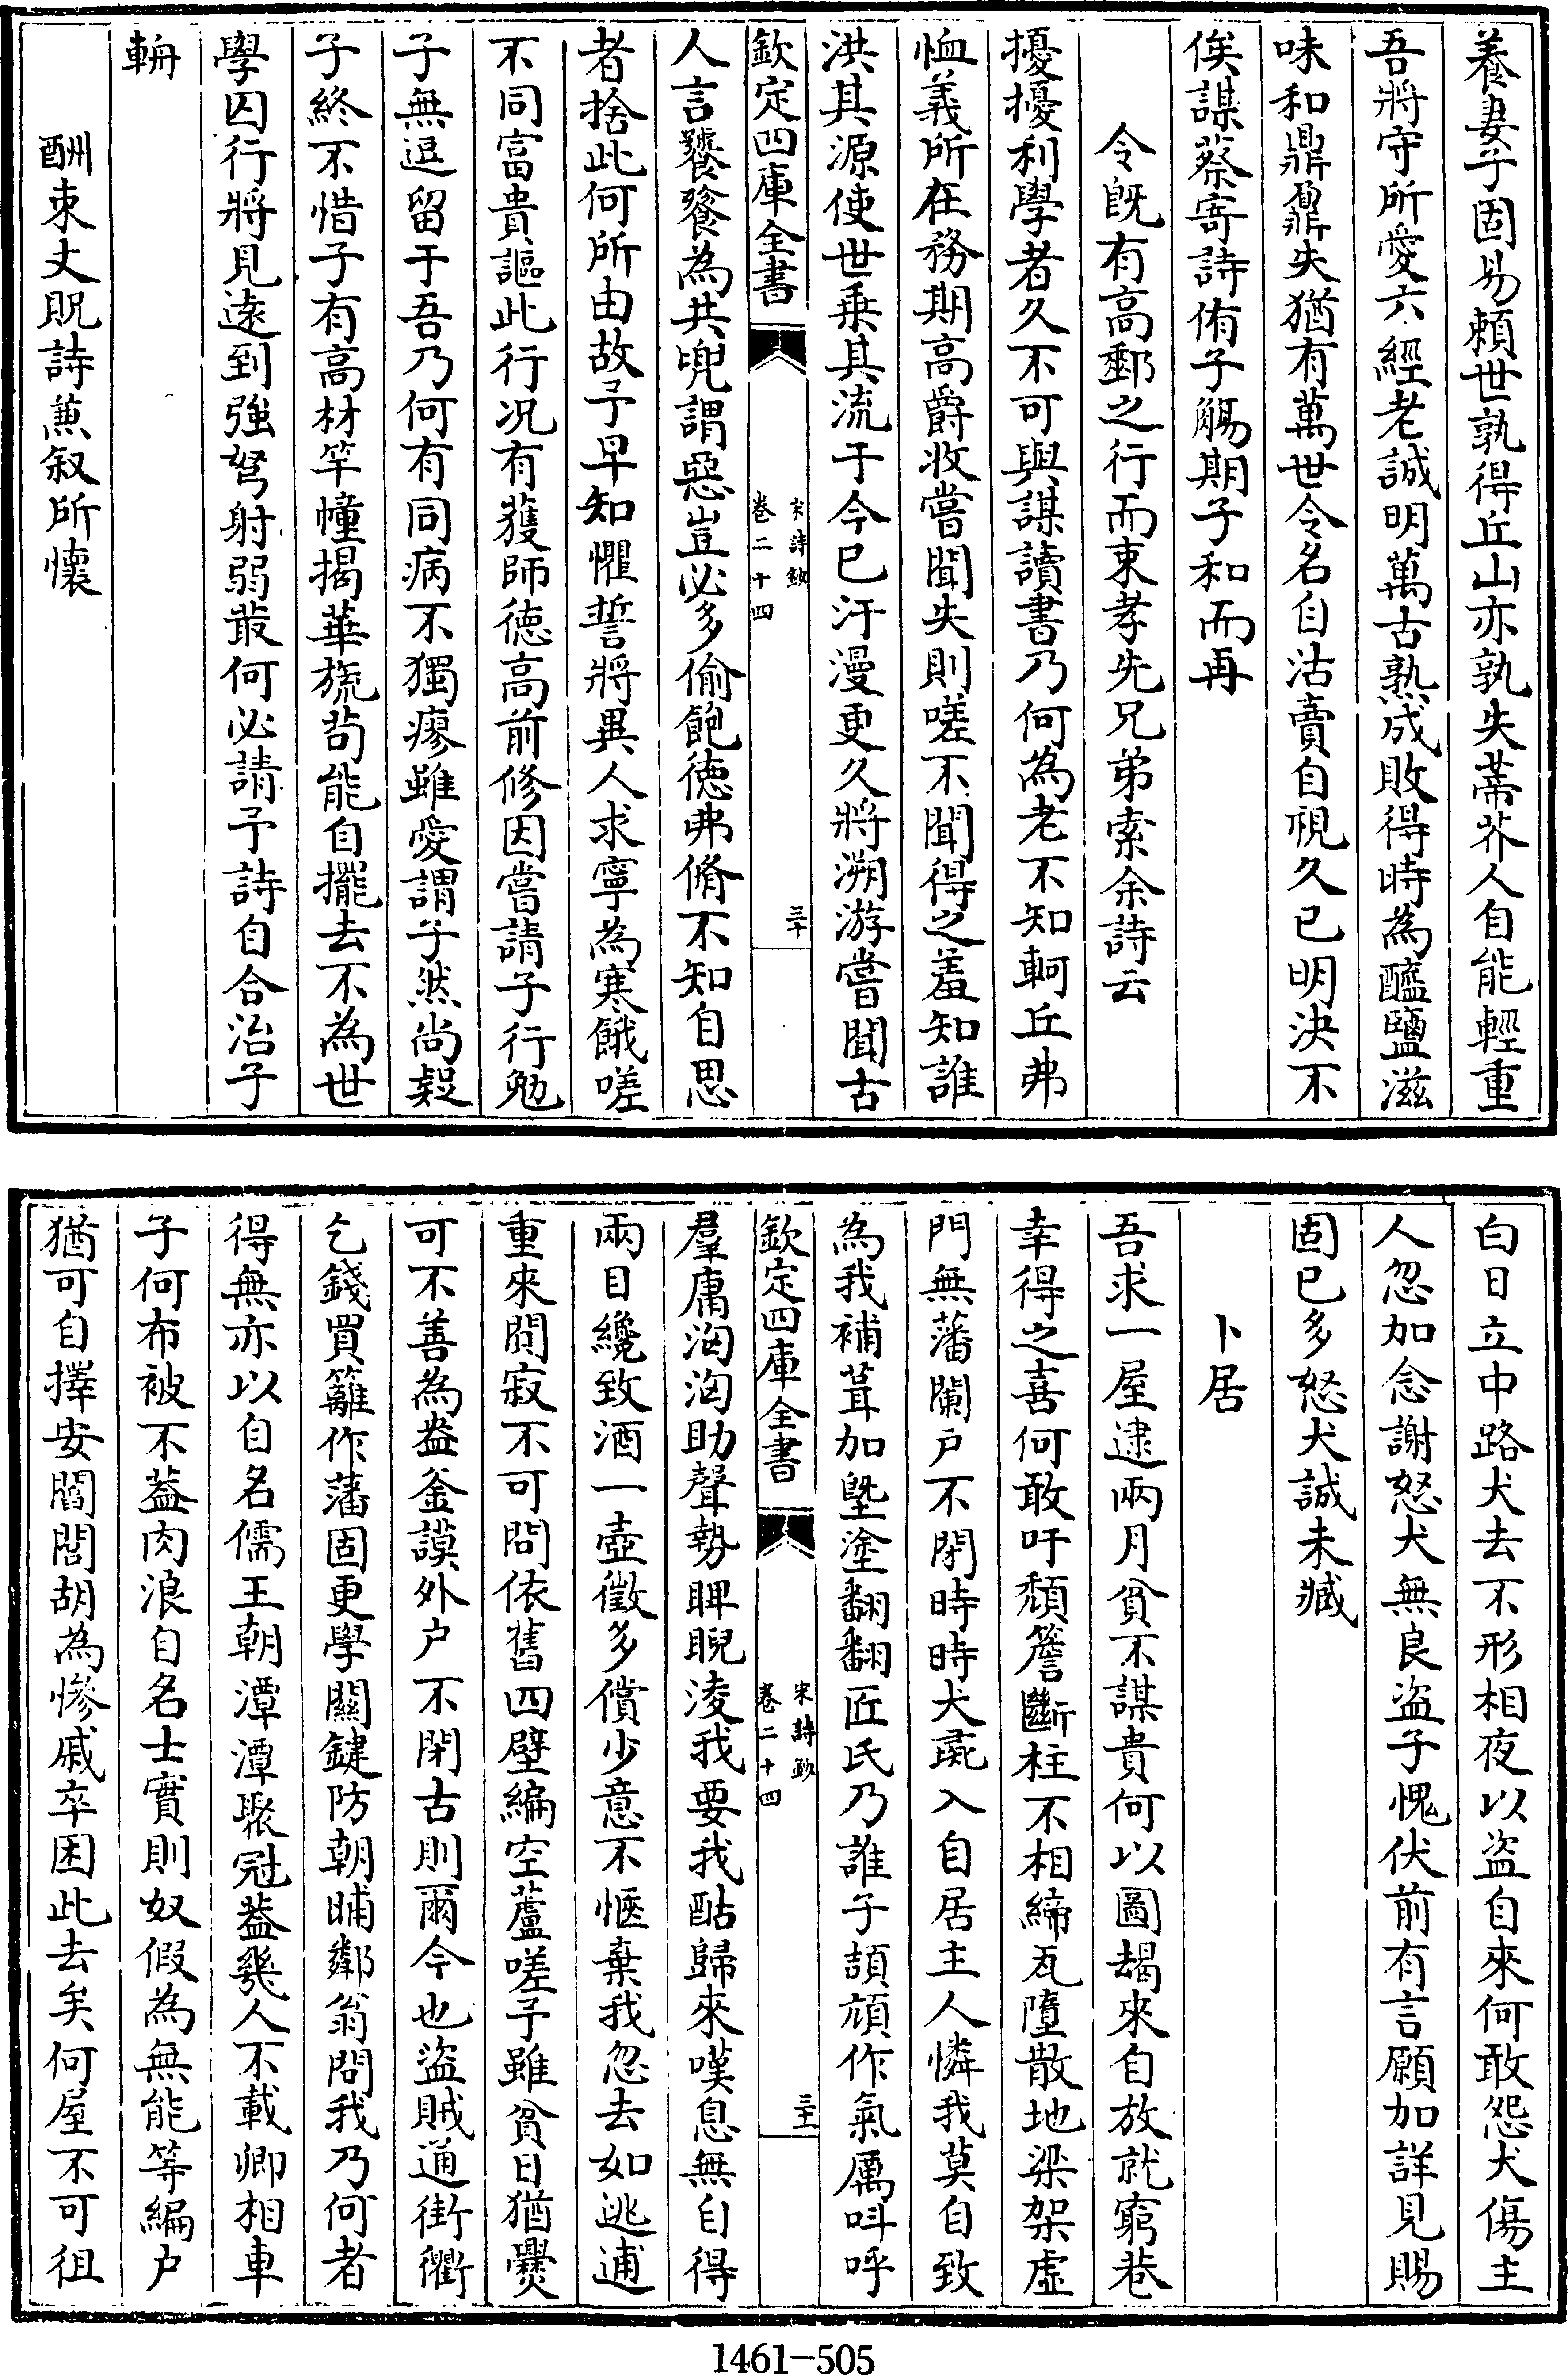 養妻子固易頼世孰得丘山亦孰失蔕芥人自能輕重
吾將守所愛六經老誠明萬古熟成敗得時為醯鹽滋
味和鼎鼐失猶有萬世令名自沽賣自視久已明決不
俟謀蔡寄詩侑子觴期子和而再
令既有高郵之行而東孝先兄弟索余詩云
擾擾利學者久不可與謀讀書乃何為老不知軻丘弗
恤義所在務期高爵收嘗聞失則嗟不聞得之羞知誰
洪其源使世乗其流于今已汗漫更久將溯游嘗聞古
欽定四庫全書
宋詩鈔
卷二十四
三十
人言饕餮為共兜謂惡豈必多偷飽徳弗脩不知自思
者捨此何所由故予早知懼誓將異人求寧為寒餓嗟
不同富貴謳此行况有獲師徳高前修因嘗請子行勉
子無逗留于吾乃何有同病不獨瘳雖愛謂子然尚疑
子終不惜子有高材竿幢揭華旒茍能自擺去不為世
學囚行將見逺到強弩射弱叢何必請予詩自合治子
輈
酬束丈貺詩兼叙所懷
白日立中路犬去不形相夜以盜自來何敢怨犬傷主
人忽加念謝怒犬無良盜子愧伏前有言願加詳見賜
固已多怒犬誠未臧
卜居
吾求一屋逮兩月貧不謀貴何以圖朅來自放就窮巷
幸得之喜何敢吁頽簷斷柱不相締瓦墮散地梁架虛
門無藩闌户不閉時時犬彘入自居主人憐我莫自致
為我補葺加墍塗翻翻匠氏乃誰子頡頏作氣厲呌呼
欽定四庫全書
宋詩鈔
卷二十四
三十一
羣庸洶洶助聲勢睥睨淩我要我酤歸來嘆息無自得
兩目纔致酒一壺徵多償少意不愜棄我忽去如逃逋
重來閴寂不可問依舊四壁編空蘆嗟予雖貧日猶爨
可不善為盎釜謨外户不閉古則爾今也盜賊通街衢
乞錢買籬作藩固更學關鍵防朝晡鄰翁問我乃何者
得無亦以自名儒王朝潭潭聚冠葢幾人不載卿相車
子何布被不葢肉浪自名士實則奴假為無能等編户
猶可自擇安閻閭胡為慘戚卒困此去矣何屋不可徂
1461-505